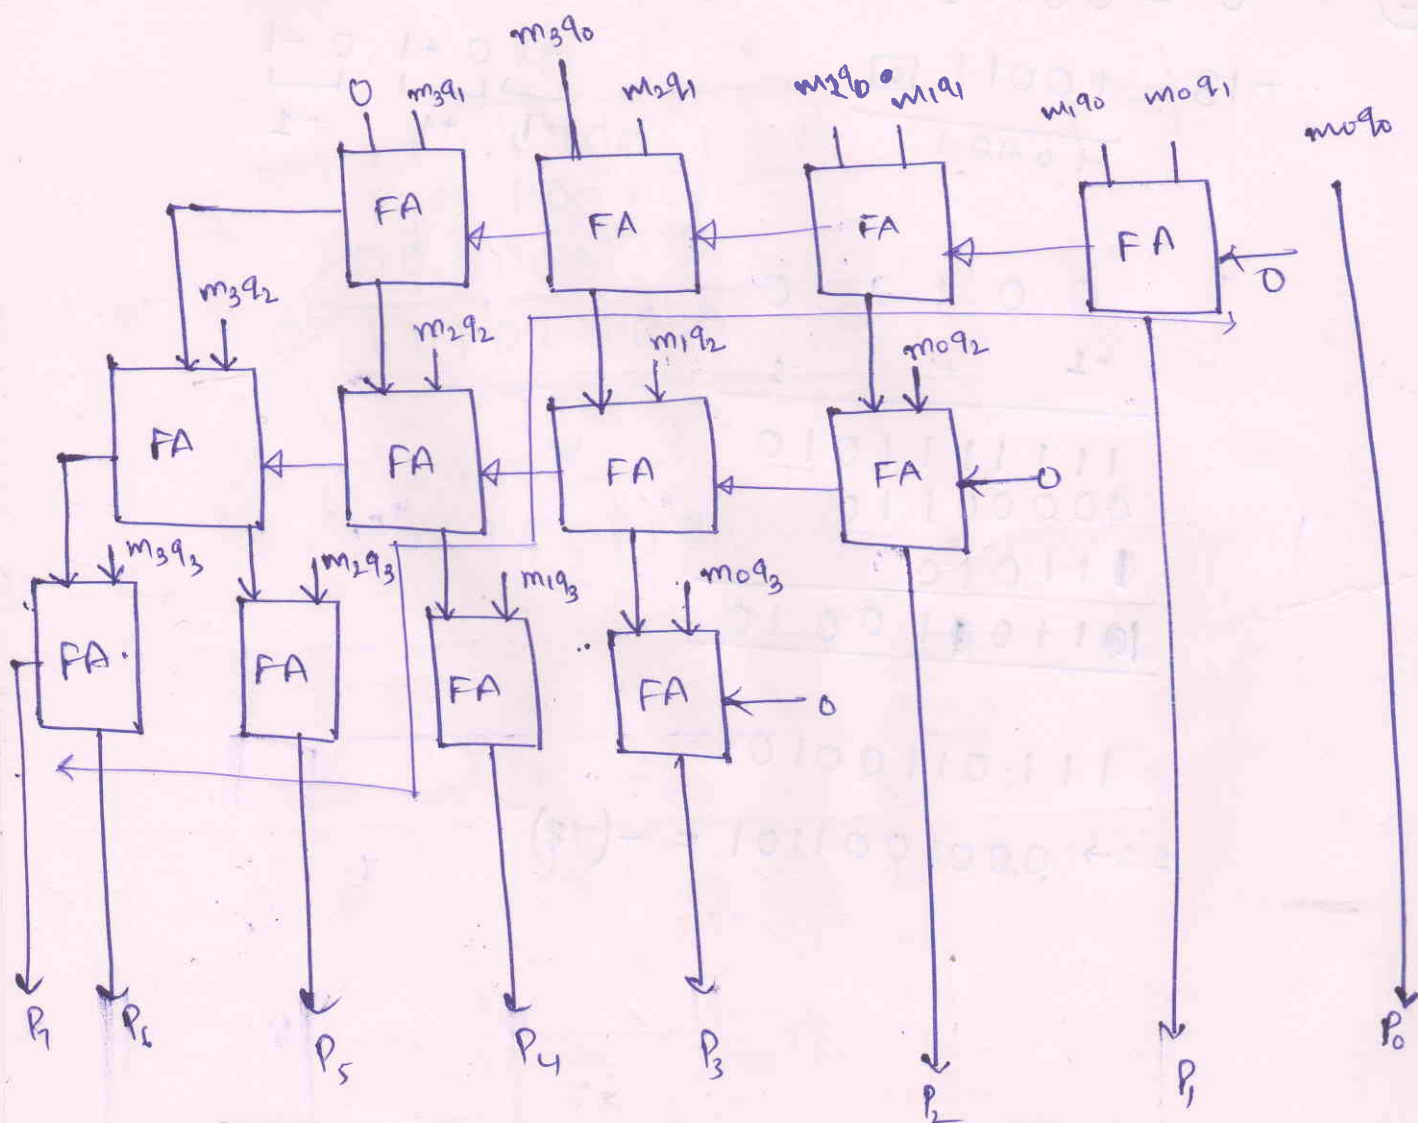 m3q0
0 m3q1 m2q1 m2q0 m1q1 m1q0 m0q1 m0q0
FA FA FA FA
0
m3q2 m2q2 m1q2 m0q2
FA FA FA FA 0
m3q3 m2q3 m1q3 m0q3
FA FA FA FA 0
P7 P6 P5 P4 P3 P2 P1 P0